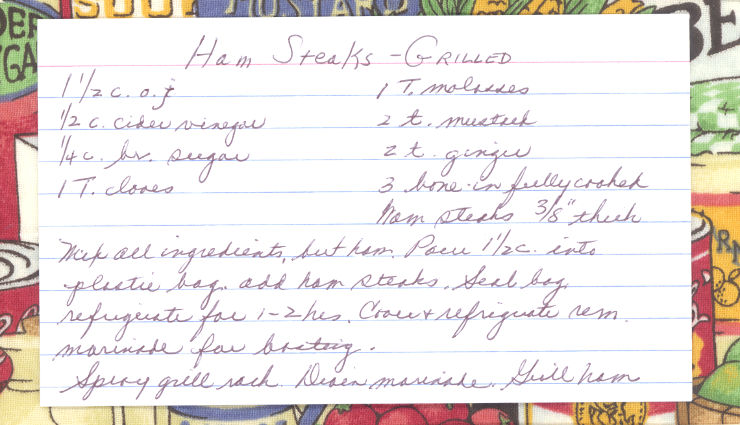 SOUP
MUSTARD
Ham Steaks - GRILLED
1 1/2 c. o.j.
1/2 c. cider vinegar
1/4 c. br. sugar
1 T. cloves
1 T. molasses
2 t. mustard
2 t. ginger
3 bone-in fully cooked
ham steaks 3/8" thick
Mix all ingredients, but ham. Pour 1 1/2 c. into
plastic bag. add ham steaks. Seal bag.
refrigerate for 1-2 hrs. Cover + refrigerate rem.
marinade for basting.
Spray grill rack. Drain marinade. Grill ham